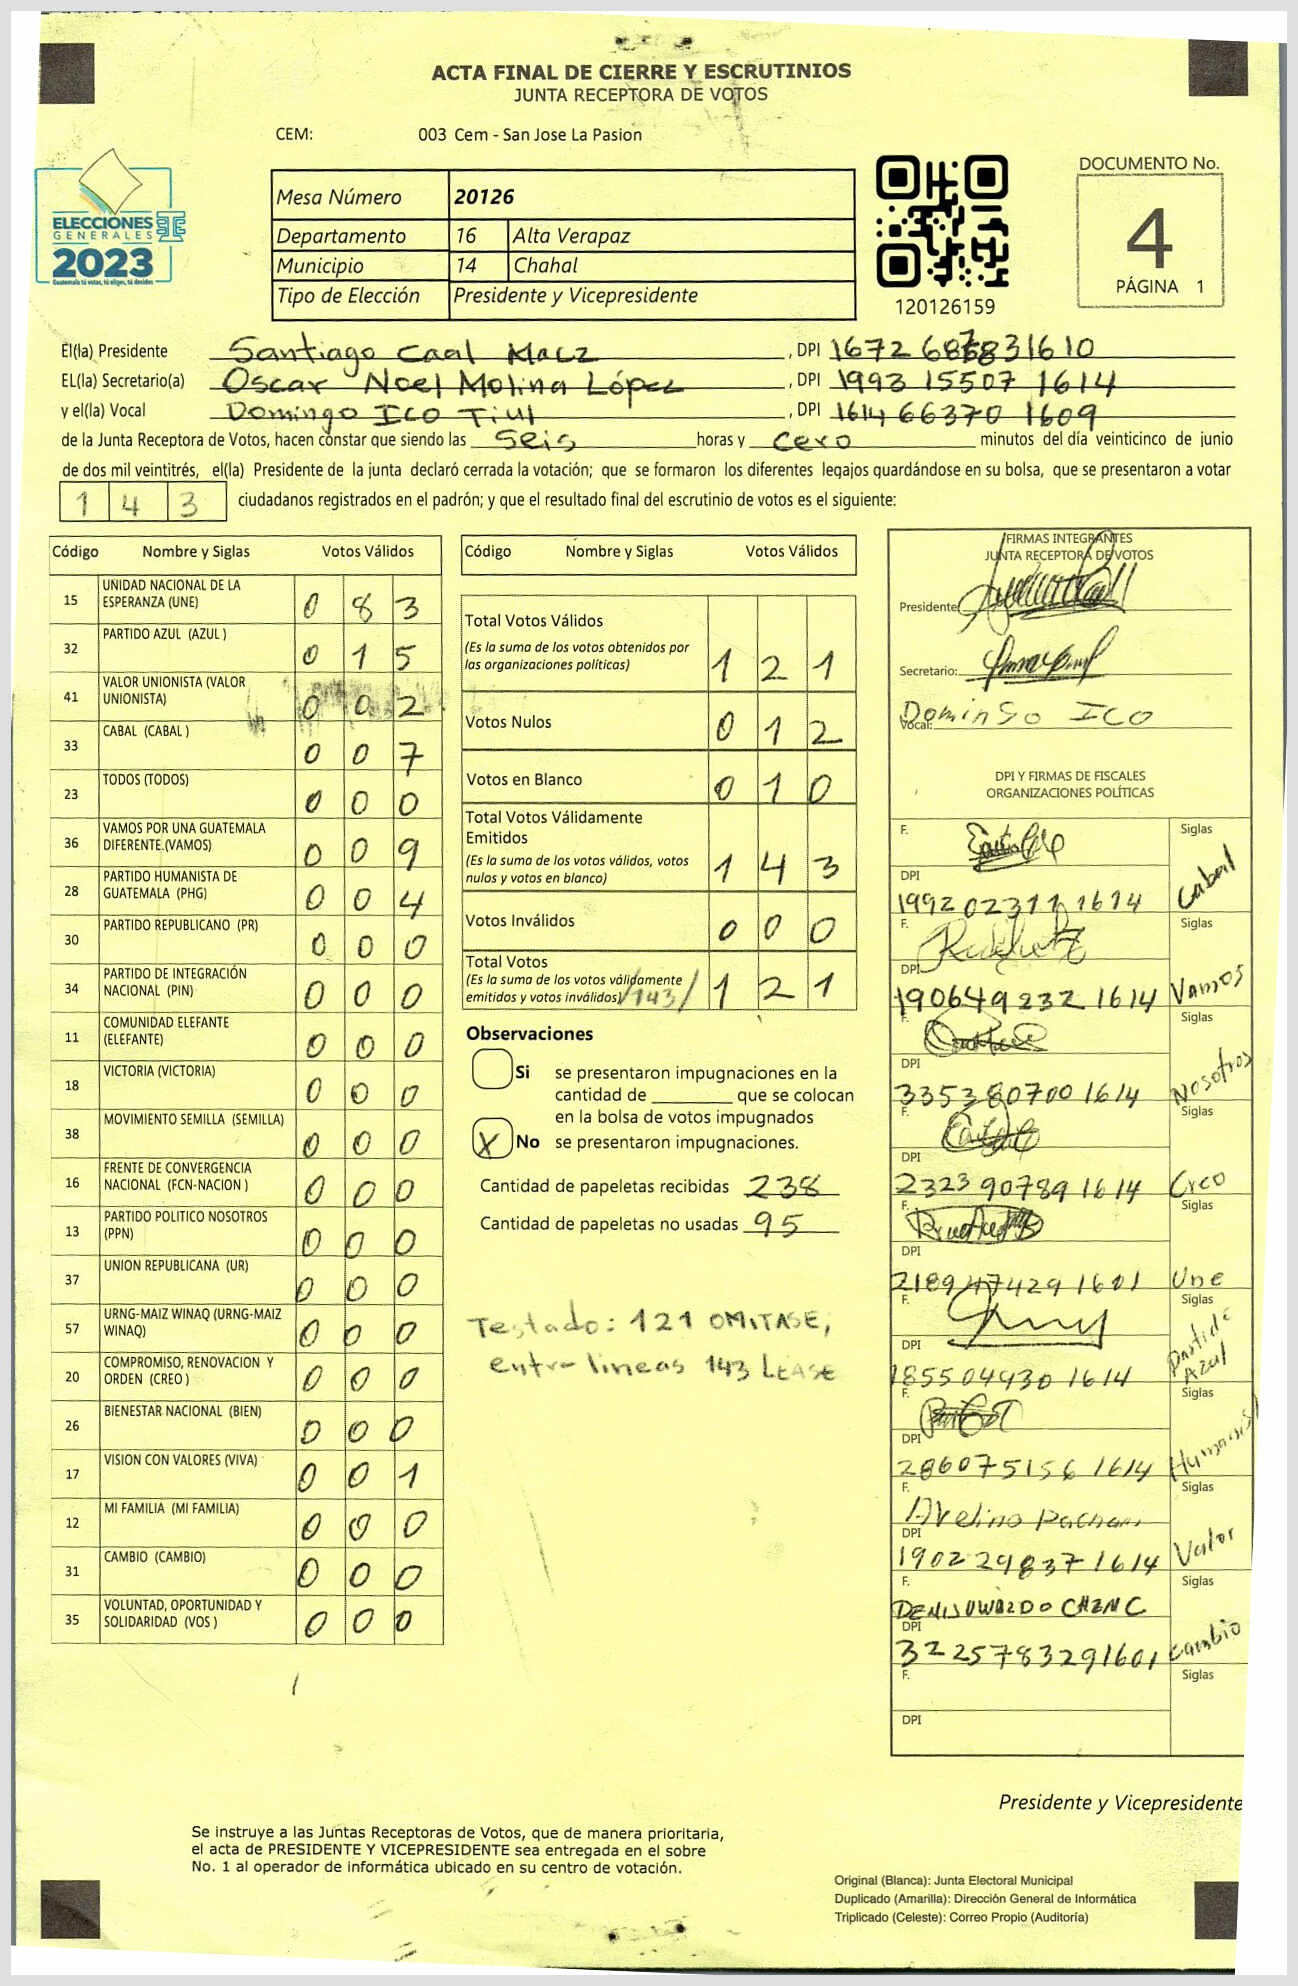 ACTA FINAL DE CIERRE Y ESCRUTINIOS
JUNTA RECEPTORA DE VOTOS
CEM: 003 Cem - San Jose La Pasion
ELECCIONES
GENERALES
2023
Guatemala tú votas, tú eliges, tú decides
Mesa Número 20126
Departamento 16 Alta Verapaz
Municipio 14 Chahal
Tipo de Elección Presidente y Vicepresidente
120126159
DOCUMENTO No.
4
PÁGINA 1
El(la) Presidente Santiago Caal Macz , DPI
EL(la) Secretario(a) Oscar Noel Molina López , DPI 1993 15507 1614
y el(la) Vocal Domingo Ico Tiul , DPI 1614 66370 1609
de la Junta Receptora de Votos, hacen constar que siendo las seis horas y cero minutos del día veinticinco de junio
de dos mil veintitrés, el(la) Presidente de la junta declaró cerrada la votación; que se formaron los diferentes legajos quardándose en su bolsa, que se presentaron a votar
143 ciudadanos registrados en el padrón; y que el resultado final del escrutinio de votos es el siguiente:
Código Nombre y Siglas Votos Válidos
15 UNIDAD NACIONAL DE LA
ESPERANZA (UNE) 0 8 3
32 PARTIDO AZUL (AZUL ) 0 1 5
41 VALOR UNIONISTA (VALOR
UNIONISTA) 0 0 2
33 CABAL (CABAL ) 0 0 7
23 TODOS (TODOS) 0 0 0
36 VAMOS POR UNA GUATEMALA
DIFERENTE.(VAMOS) 0 0 9
28 PARTIDO HUMANISTA DE
GUATEMALA (PHG) 0 0 4
30 PARTIDO REPUBLICANO (PR) 0 0 0
34 PARTIDO DE INTEGRACIÓN
NACIONAL (PIN) 0 0 0
11 COMUNIDAD ELEFANTE
(ELEFANTE) 0 0 0
18 VICTORIA (VICTORIA) 0 0 0
38 MOVIMIENTO SEMILLA (SEMILLA) 0 0 0
16 FRENTE DE CONVERGENCIA
NACIONAL (FCN-NACION ) 0 0 0
13 PARTIDO POLITICO NOSOTROS
(PPN) 0 0 0
37 UNION REPUBLICANA (UR) 0 0 0
57 URNG-MAIZ WINAQ (URNG-MAIZ
WINAQ) 0 0 0
20 COMPROMISO, RENOVACION Y
ORDEN (CREO ) 0 0 0
26 BIENESTAR NACIONAL (BIEN) 0 0 0
17 VISION CON VALORES (VIVA) 0 0 1
12 MI FAMILIA (MI FAMILIA) 0 0 0
31 CAMBIO (CAMBIO) 0 0 0
35 VOLUNTAD, OPORTUNIDAD Y
SOLIDARIDAD (VOS ) 0 0 0
Código Nombre y Siglas Votos Válidos
Total Votos Válidos
(Es la suma de los votos obtenidos por
las organizaciones políticas) 1 2 1
Votos Nulos 0 1 2
Votos en Blanco 0 1 0
Total Votos Válidamente
Emitidos
(Es la suma de los votos válidos, votos
nulos y votos en blanco) 1 4 3
Votos Inválidos 0 0 0
Total Votos
(Es la suma de los votos válidamente
emitidos y votos inválidos) /143/ 1 2 1
Observaciones
Si se presentaron impugnaciones en la
cantidad de ________ que se colocan
en la bolsa de votos impugnados
X No se presentaron impugnaciones.
Cantidad de papeletas recibidas 238
Cantidad de papeletas no usadas 95
Testado: 121 OMITASE,
entre lineas 143 LEASE
FIRMAS INTEGRANTES
JUNTA RECEPTORA DE VOTOS
Presidente:
Secretario:
Domingo Ico
Vocal:
DPI Y FIRMAS DE FISCALES
ORGANIZACIONES POLÍTICAS
F. Siglas
DPI
1992 02311 1614 Cabal
F. Siglas
DPI
190649232 1614 Vamos
F. Siglas
DPI
335380700 1614 Nosotros
F. Siglas
DPI
2323 90789 1614 Creo
F. Siglas
DPI
218947429 1601 Une
F. Siglas
DPI
185504930 1614 Partido Azul
F. Siglas
DPI
286075156 1614
F. Siglas
Avelino
DPI
190229837 1614 Valor
F. Siglas
DPI
3225783291601 Cambio
F. Siglas
DPI
Presidente y Vicepresidente
Se instruye a las Juntas Receptoras de Votos, que de manera prioritaria,
el acta de PRESIDENTE Y VICEPRESIDENTE sea entregada en el sobre
No. 1 al operador de informática ubicado en su centro de votación.
Original (Blanca): Junta Electoral Municipal
Duplicado (Amarilla): Dirección General de Informática
Triplicado (Celeste): Correo Propio (Auditoría)